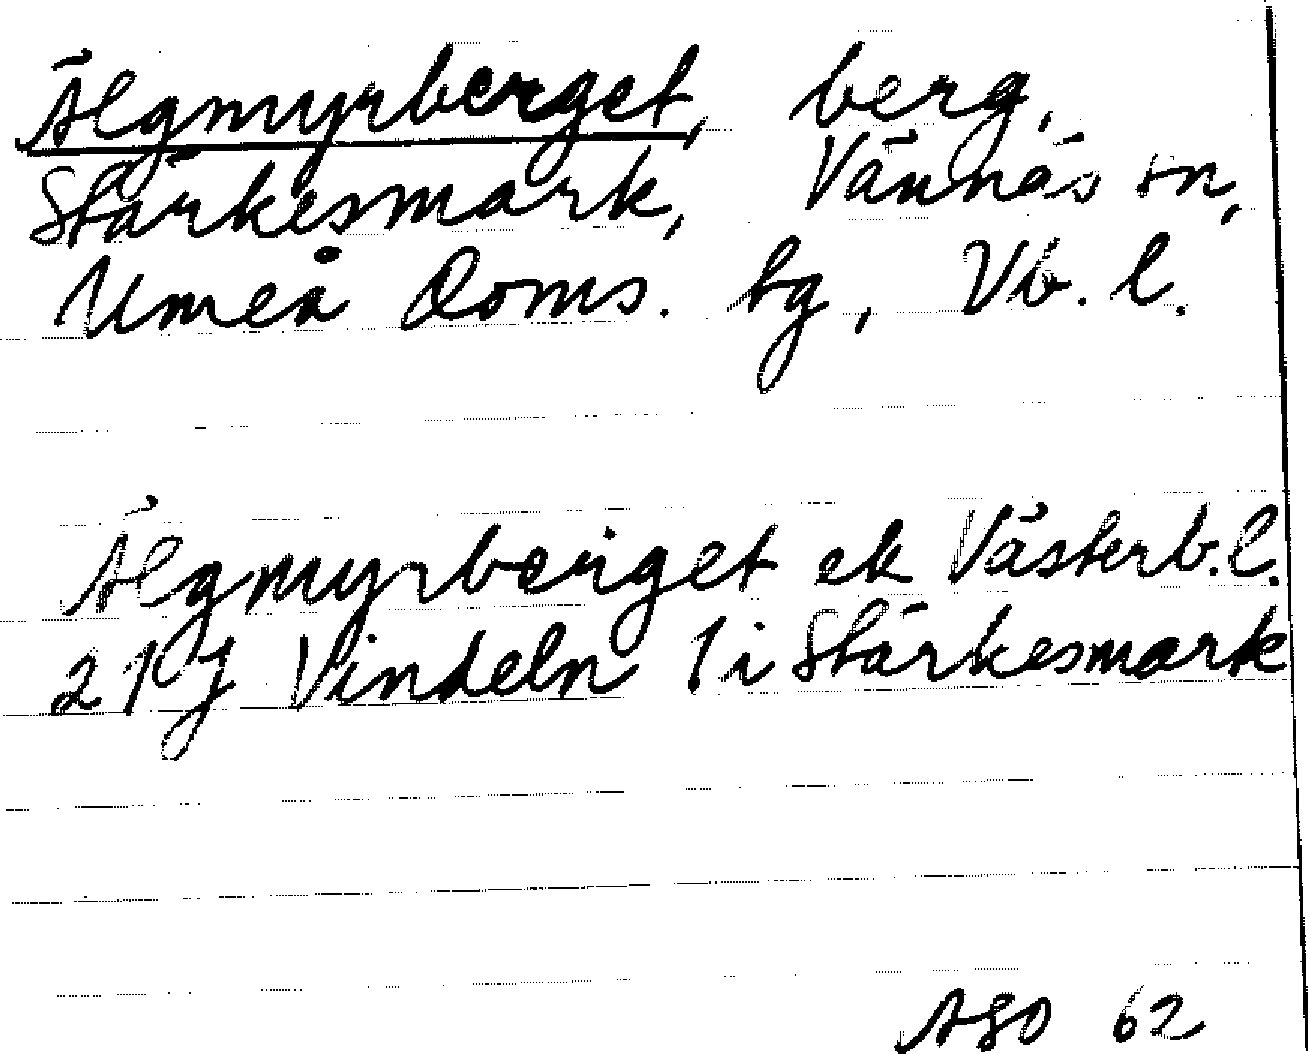 Älgmyrberget, berg,
Stärkesmark, Vännäs sn,
Umeå Doms. hg, Vb. l.
Älgmyrberget ek Västerb.l.
21 J Vindeln 1 i Stärkesmark
ASO 62